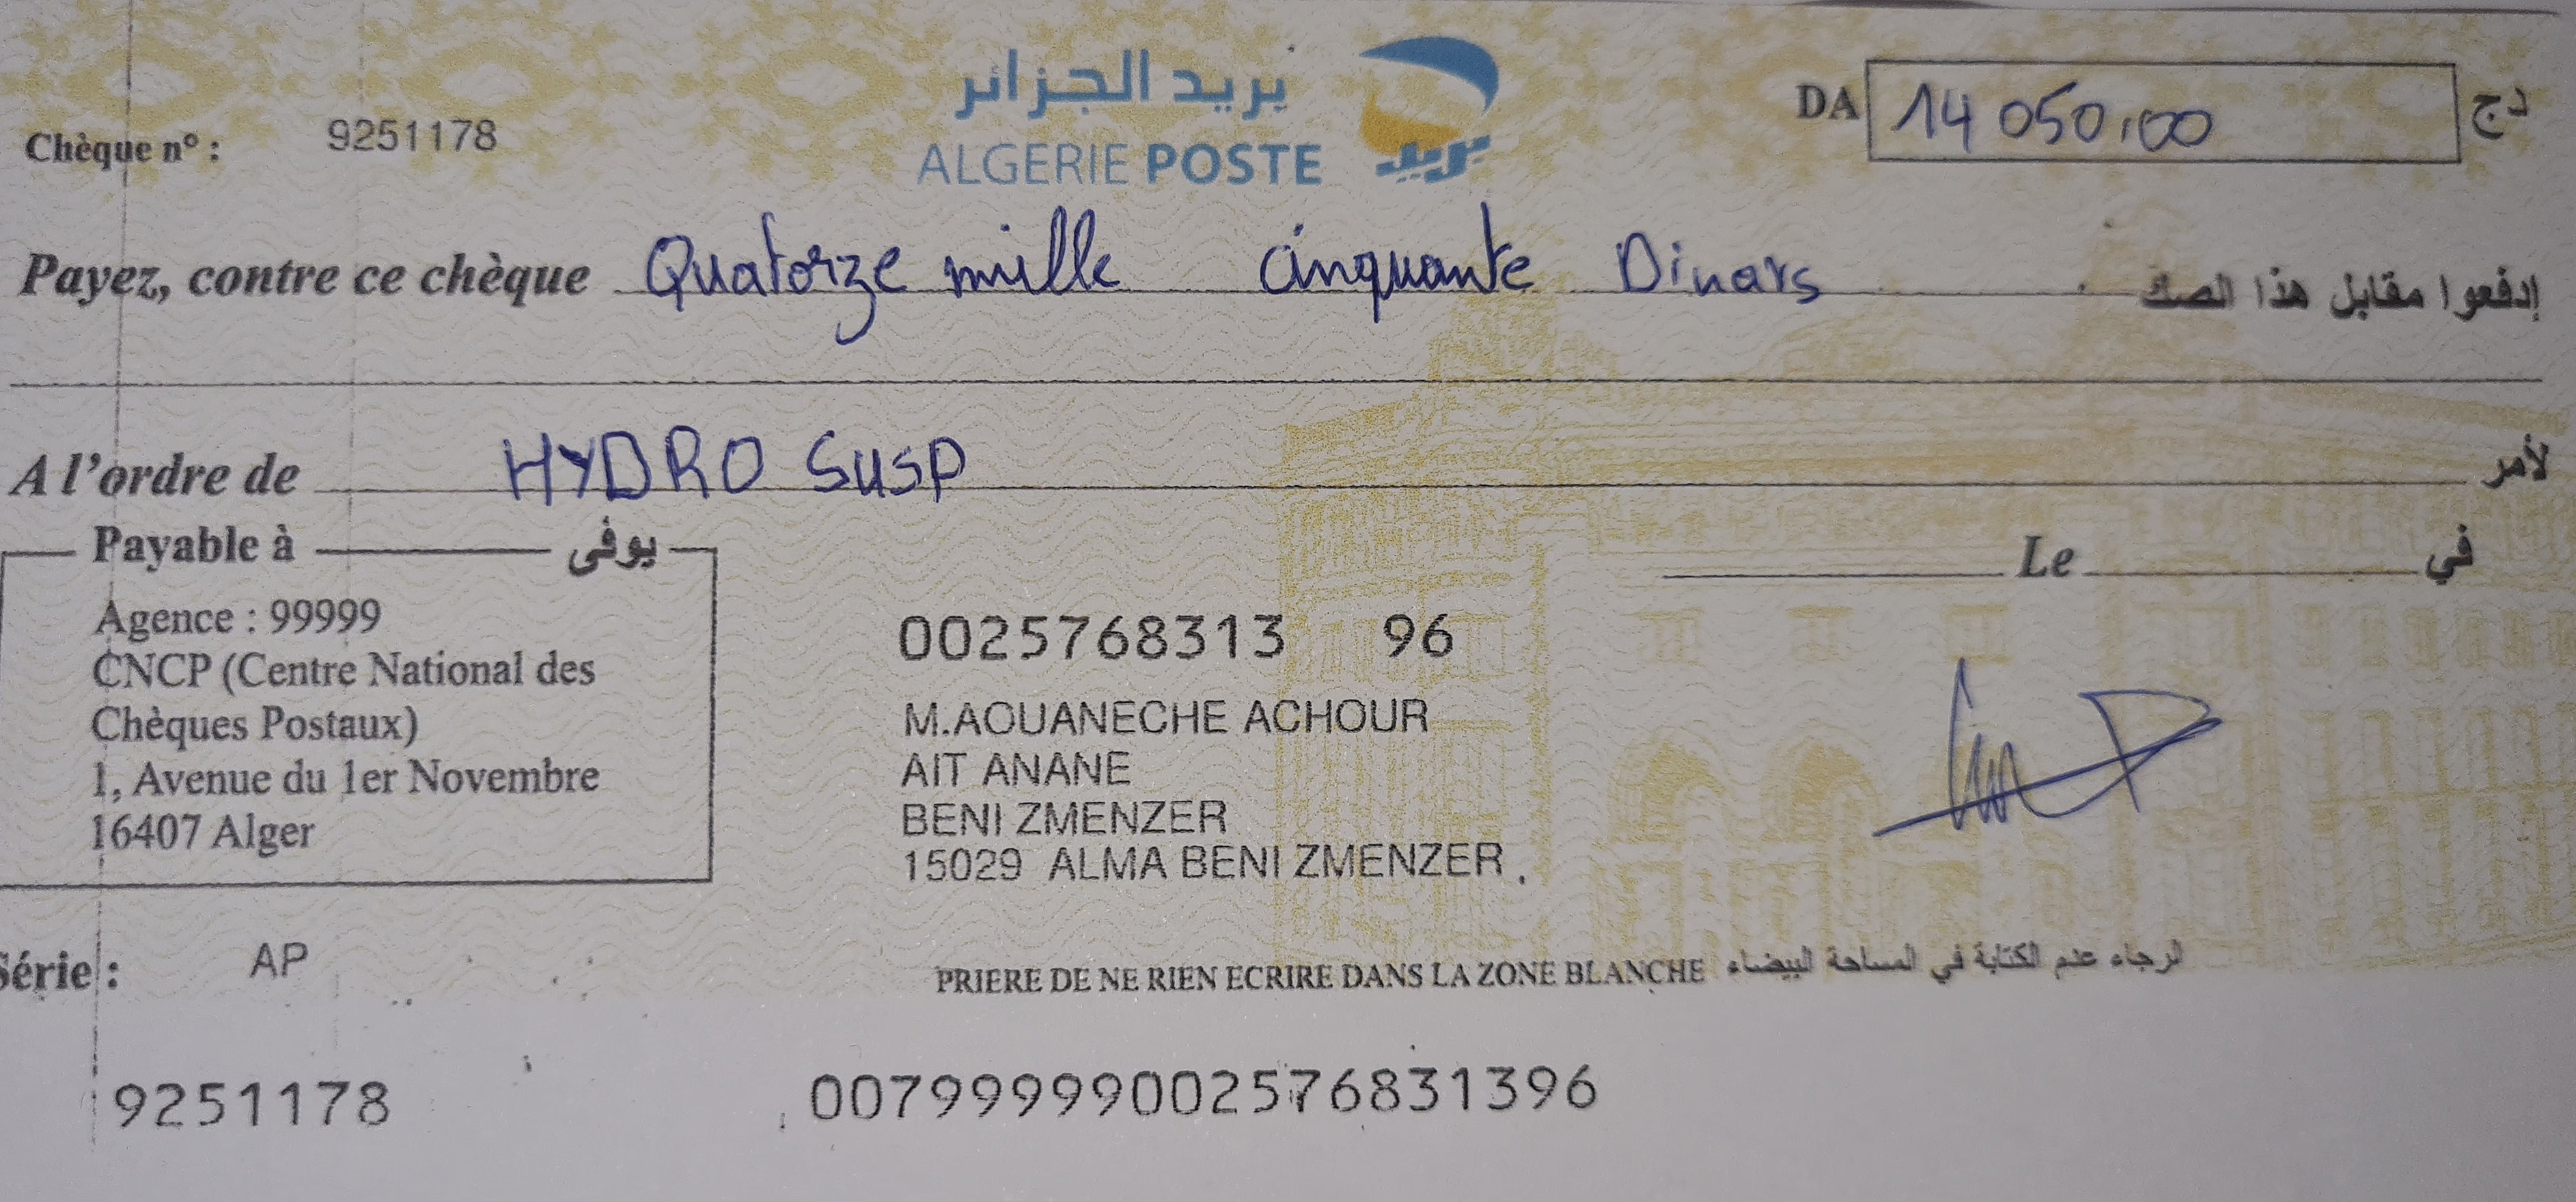 بريد الجزائر
ALGERIE POSTE
بريد
Chèque n° : 9251178
DA 14 050,00 دج
Payez, contre ce chèque Quatorze mille cinquante Dinars إدفعوا مقابل هذا الصك
A l'ordre de HYDRO SUSP لأمر
Payable à يوفى
Le في
Agence : 99999
CNCP (Centre National des
Chèques Postaux)
1, Avenue du 1er Novembre
16407 Alger
0025768313 96
M.AOUANECHE ACHOUR
AIT ANANE
BENI ZMENZER
15029 ALMA BENI ZMENZER
Série : AP
PRIERE DE NE RIEN ECRIRE DANS LA ZONE BLANCHE الرجاء عدم الكتابة في المساحة البيضاء
9251178 00799999002576831396